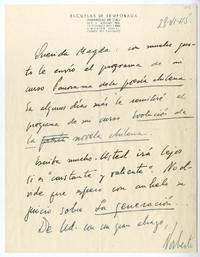 ESCUELAS DE TEMPORADA
UNIVERSIDAD DE CHILE
28-VI-45.
Querida Magda: con mucho gus-
to le envío el programa de mi
curso Panorama de la poesía chilena.
En algunos días más le remitiré el
programa de mi curso Evolución de
la novela chilena.
Escriba mucho. Usted irá lejos
si es "constante y valiente". No ol-
vide que espero con anhelo su
juicio sobre La generación...
De Ud. con un gran abrazo,
Norberto